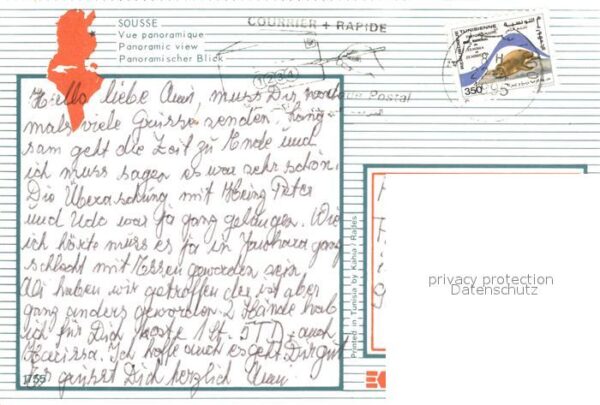 SOUSSE
Vue panoramique
Panoramic view
Panoramischer Blick
COURRIER + RAPIDE
1234
Code Postal
TUNISIENNE
350
1995
Hello liebe Omi, muss Dir noch
mals viele Grüsse senden. Lang-
sam geht die Zeit zu Ende und
ich muss sagen es war sehr schön.
Die Überaschung mit Heinz Peter
und Udo war ja ganz gelungen. Wie
ich hörte muss es ja in ganz
schlecht mit Essen geworden sein.
Ali haben wir getroffen der ist aber
ganz anders geworden. 2 Hände hab
ich für Dich koste 1 St. 5 TD - auch
Harissa. Ich hoffe auch es geht Dir gut
Es grüsst Dich herzlich
1755
Printed in Tunisia by Kahia / Rades
privacy protection
Datenschutz